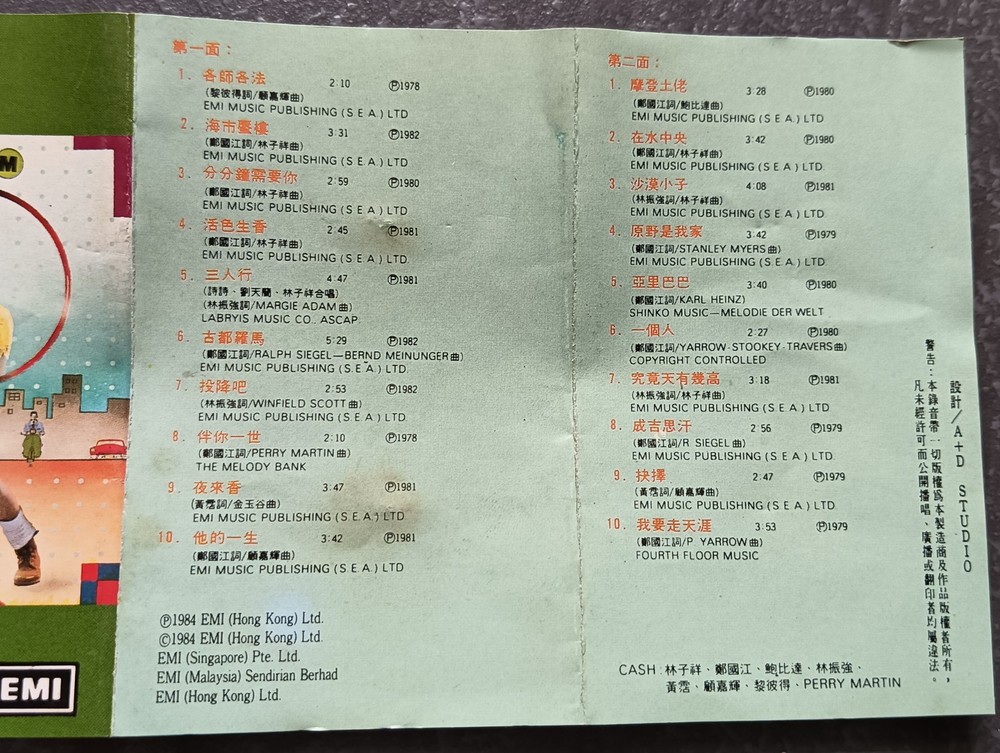 M
EMI
第一面：
1. 各師各法 2:10 Ⓟ1978
（黎彼得詞/顧嘉輝曲）
EMI MUSIC PUBLISHING (S.E.A.) LTD
2. 海市蜃樓 3:31 Ⓟ1982
（鄭國江詞/林子祥曲）
EMI MUSIC PUBLISHING (S.E.A.) LTD
3. 分分鐘需要你 2:59 Ⓟ1980
（鄭國江詞/林子祥曲）
EMI MUSIC PUBLISHING (S.E.A.) LTD
4. 活色生香 2:45 Ⓟ1981
（鄭國江詞/林子祥曲）
EMI MUSIC PUBLISHING (S.E.A.) LTD.
5. 三人行 4:47 Ⓟ1981
（詩詩、劉天蘭、林子祥合唱）
（林振強詞/MARGIE ADAM曲）
LABRYIS MUSIC CO., ASCAP.
6. 古都羅馬 5:29 Ⓟ1982
（鄭國江詞/RALPH SIEGEL—BERND MEINUNGER曲）
EMI MUSIC PUBLISHING (S.E.A.) LTD.
7. 投降吧 2:53 Ⓟ1982
（林振強詞/WINFIELD SCOTT曲）
EMI MUSIC PUBLISHING (S.E.A.) LTD.
8. 伴你一世 2:10 Ⓟ1978
（鄭國江詞/PERRY MARTIN曲）
THE MELODY BANK
9. 夜來香 3:47 Ⓟ1981
（黃霑詞/金玉谷曲）
EMI MUSIC PUBLISHING (S.E.A.) LTD
10. 他的一生 3:42 Ⓟ1981
（鄭國江詞/顧嘉輝曲）
EMI MUSIC PUBLISHING (S.E.A.) LTD
Ⓟ1984 EMI (Hong Kong) Ltd.
©1984 EMI (Hong Kong) Ltd.
EMI (Singapore) Pte. Ltd.
EMI (Malaysia) Sendirian Berhad
EMI (Hong Kong) Ltd.
第二面：
1. 摩登土佬 3:28 Ⓟ1980
（鄭國江詞/鮑比達曲）
EMI MUSIC PUBLISHING (S.E.A.) LTD.
2. 在水中央 3:42 Ⓟ1980
（鄭國江詞/林子祥曲）
EMI MUSIC PUBLISHING (S.E.A.) LTD.
3. 沙漠小子 4:08 Ⓟ1981
（林振強詞/林子祥曲）
EMI MUSIC PUBLISHING (S.E.A.) LTD
4. 原野是我家 3:42 Ⓟ1979
（鄭國江詞/STANLEY MYERS曲）
EMI MUSIC PUBLISHING (S.E.A.) LTD.
5. 亞里巴巴 3:40 Ⓟ1980
（鄭國江詞/KARL HEINZ）
SHINKO MUSIC—MELODIE DER WELT
6. 一個人 2:27 Ⓟ1980
（鄭國江詞/YARROW-STOOKEY-TRAVERS曲）
COPYRIGHT CONTROLLED
7. 究竟天有幾高 3:18 Ⓟ1981
（林振強詞/林子祥曲）
EMI MUSIC PUBLISHING (S.E.A.) LTD
8. 成吉思汗 2:56 Ⓟ1979
（鄭國江詞/R. SIEGEL曲）
EMI MUSIC PUBLISHING (S.E.A.) LTD.
9. 抉擇 2:47 Ⓟ1979
（黃霑詞/顧嘉輝曲）
EMI MUSIC PUBLISHING (S.E.A.) LTD
10. 我要走天涯 3:53 Ⓟ1979
（鄭國江詞/P. YARROW曲）
FOURTH FLOOR MUSIC
CASH：林子祥、鄭國江、鮑比達、林振強、
黃霑、顧嘉輝、黎彼得、PERRY MARTIN
設計／A+D STUDIO
警告：本錄音帶一切版權爲本製造商及作品版權者所有，
凡未經許可而公開播唱、廣播或翻印者均屬違法。